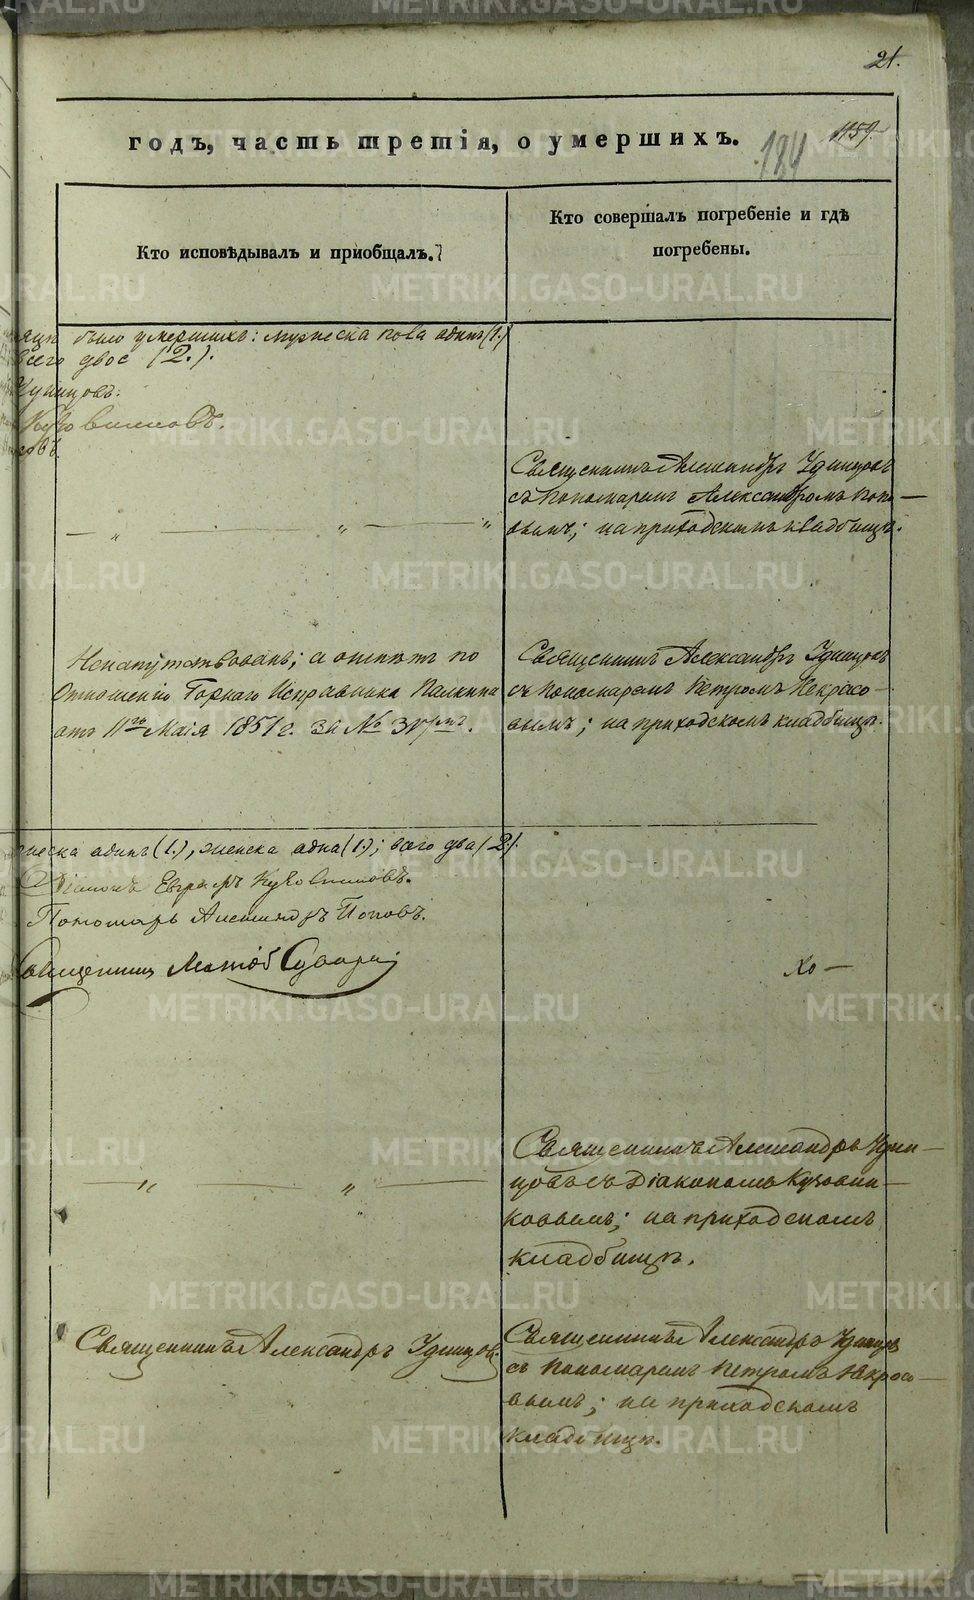 21.
годъ, часть третія, о умершихъ.
184
1159.
Кто исповѣдывалъ и пріобщалъ.
Кто совершалъ погребеніе и гдѣ
погребены.
было умершихъ: мужеска пола одинъ (1.)
всего двое (2.).
Удинцовъ:
Кузовниковъ.
Священникъ Александръ Удинцовъ
съ Пономаремъ Александромъ Попо—
вымъ; на приходскомъ кладбищѣ.
Ненапутствованъ; а отпѣтъ по
Отношенію Горнаго Исправника Палкина
отъ 11го Маія 1851 г. за №
Священникъ Александръ Удинцовъ
съ Пономаремъ Петромъ Некрасо—
вымъ; на приходскомъ кладбищѣ.
жеска одинъ (1.), женска одна (1.); всего два (2.).
Діаконъ Евграфъ Кузовниковъ.
Пономарь Александръ Поповъ.
Священникъ
Хо—
Священникъ Александръ Удин—
цовъ съ Діакономъ Кузовни—
ковымъ; на приходскомъ
кладбищѣ.
Священникъ Александръ Удинцовъ.
Священникъ Александръ Удинцовъ
съ Пономаремъ Петромъ Некрасо—
вымъ; на приходскомъ
кладбищѣ.
METRIKI.GASO-URAL.RU